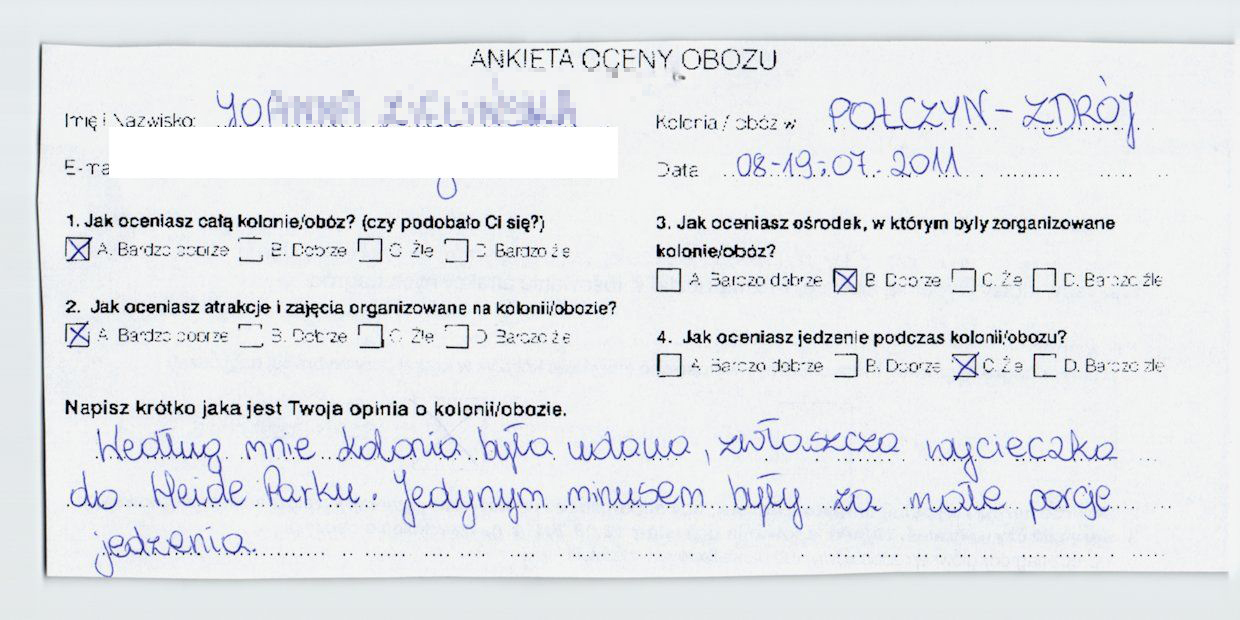 ANKIETA OCENY OBOZU
Imię i Nazwisko:
Kolonia / obóz w POŁCZYN-ZDRÓJ
E-ma
Data 08-19.07.2011
1. Jak oceniasz całą kolonie/obóz? (czy podobało Ci się?)
A. Bardzo dobrze B. Dobrze C. Źle D. Bardzo źle
2. Jak oceniasz atrakcje i zajęcia organizowane na kolonii/obozie?
A. Bardzo dobrze B. Dobrze C. Źle D. Bardzo źle
3. Jak oceniasz ośrodek, w którym były zorganizowane
kolonie/obóz?
A. Bardzo dobrze B. Dobrze C. Źle D. Bardzo źle
4. Jak oceniasz jedzenie podczas kolonii/obozu?
A. Bardzo dobrze B. Dobrze C. Źle D. Bardzo źle
Napisz krótko jaka jest Twoja opinia o kolonii/obozie.
Według mnie kolonia była udana, zwłaszcza wycieczka
do Heide Parku. Jedynym minusem były za małe porcje
jedzenia.